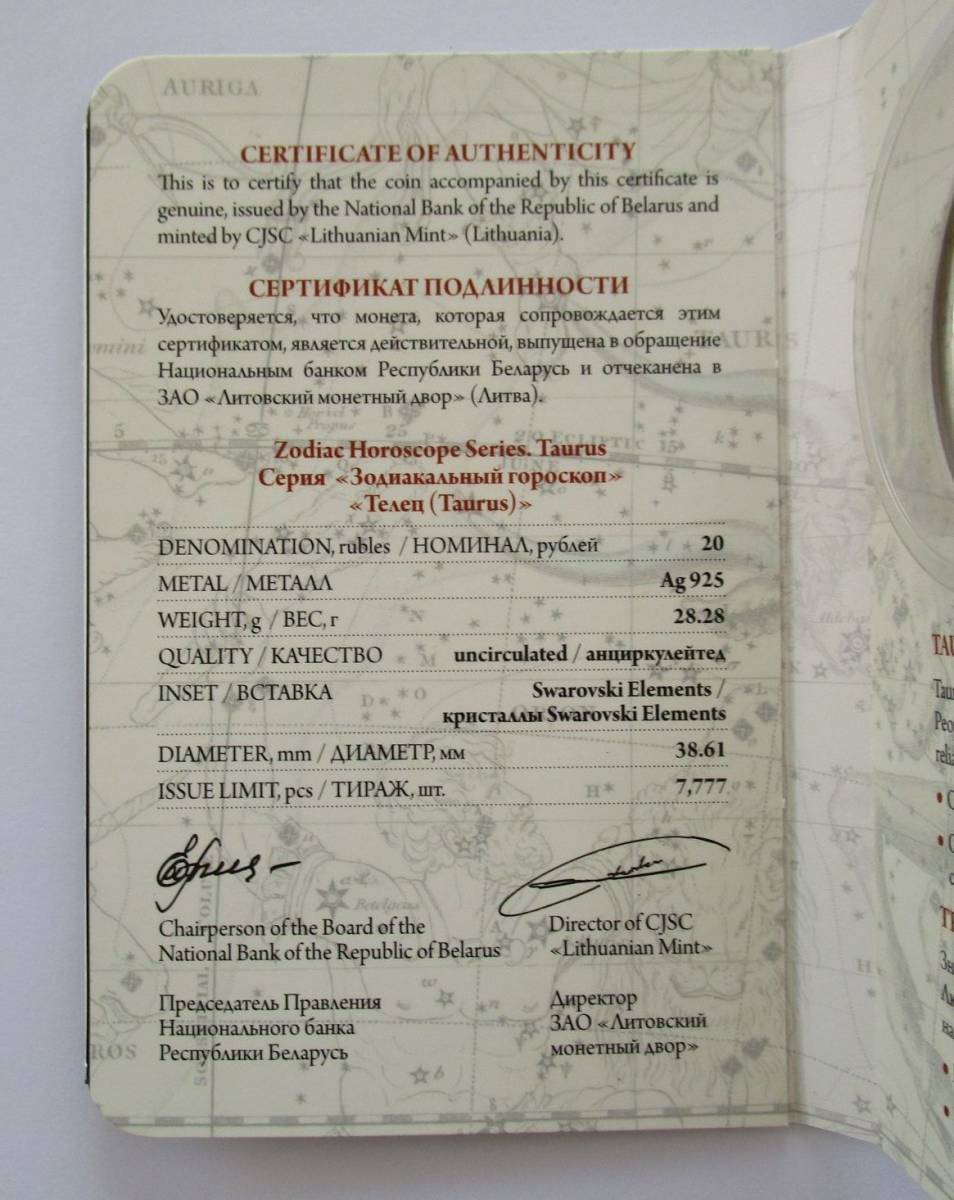 AURIGA
CERTIFICATE OF AUTHENTICITY
This is to certify that the coin accompanied by this certificate is
genuine, issued by the National Bank of the Republic of Belarus and
minted by CJSC «Lithuanian Mint» (Lithuania).
СЕРТИФИКАТ ПОДЛИННОСТИ
Удостоверяется, что монета, которая сопровождается этим
сертификатом, является действительной, выпущена в обращение
Национальным банком Республики Беларусь и отчеканена в
ЗАО «Литовский монетный двор» (Литва).
TAURUS
Zodiac Horoscope Series. Taurus
Серия «Зодиакальный гороскоп»
«Телец (Taurus)»
DENOMINATION, rubles / НОМИНАЛ, рублей 20
METAL / МЕТАЛЛ Ag 925
WEIGHT, g / ВЕС, г 28.28
QUALITY / КАЧЕСТВО uncirculated / анциркулейтед
INSET / ВСТАВКА Swarovski Elements /
кристаллы Swarovski Elements
DIAMETER, mm / ДИАМЕТР, мм 38.61
ISSUE LIMIT, pcs / ТИРАЖ, шт. 7,777
Chairperson of the Board of the
National Bank of the Republic of Belarus
Director of CJSC
«Lithuanian Mint»
Председатель Правления
Национального банка
Республики Беларусь
Директор
ЗАО «Литовский
монетный двор»